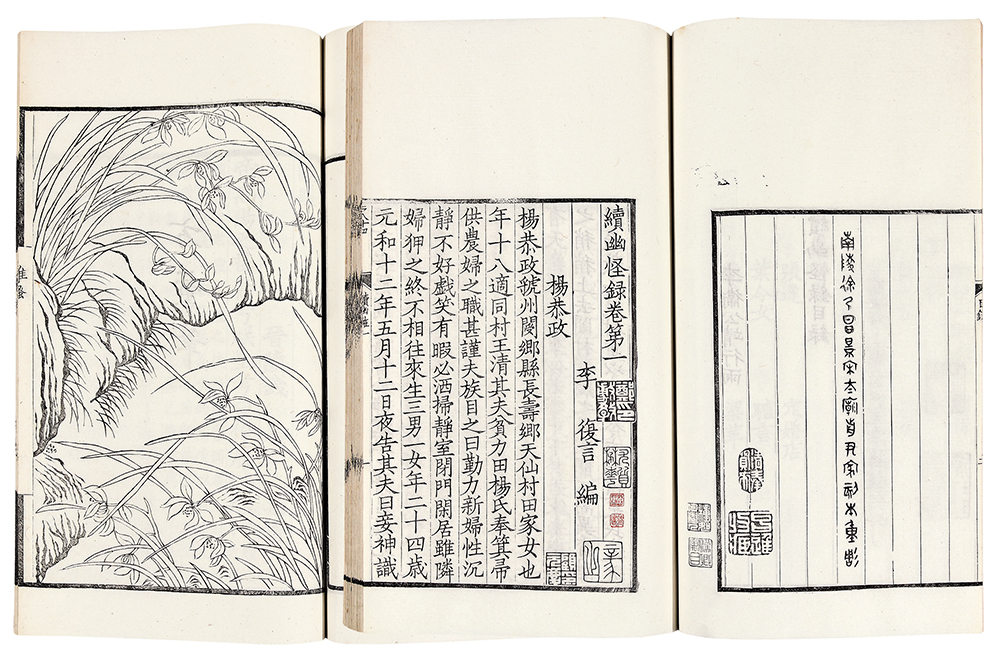 南陵徐乃昌景宋太廟前尹家刻本重
續幽怪錄卷第一
李復言編
楊恭政
楊恭政虢州閿鄉縣長壽鄉天仙村田家女也
年十八適同村王清其夫貧力田楊氏奉箕帚
供農婦之職甚謹夫族目之曰勤力新婦性沉
靜不好戲笑有暇必洒掃靜室閉門閑居雖隣
婦狎之終不相往來生三男一女年二十四歲
元和十二年五月十二日夜告其夫曰妾神識